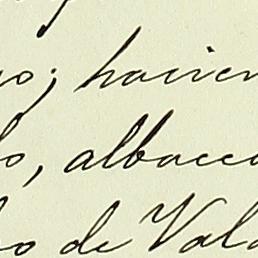 o; hacien
o, albacea
o de Val